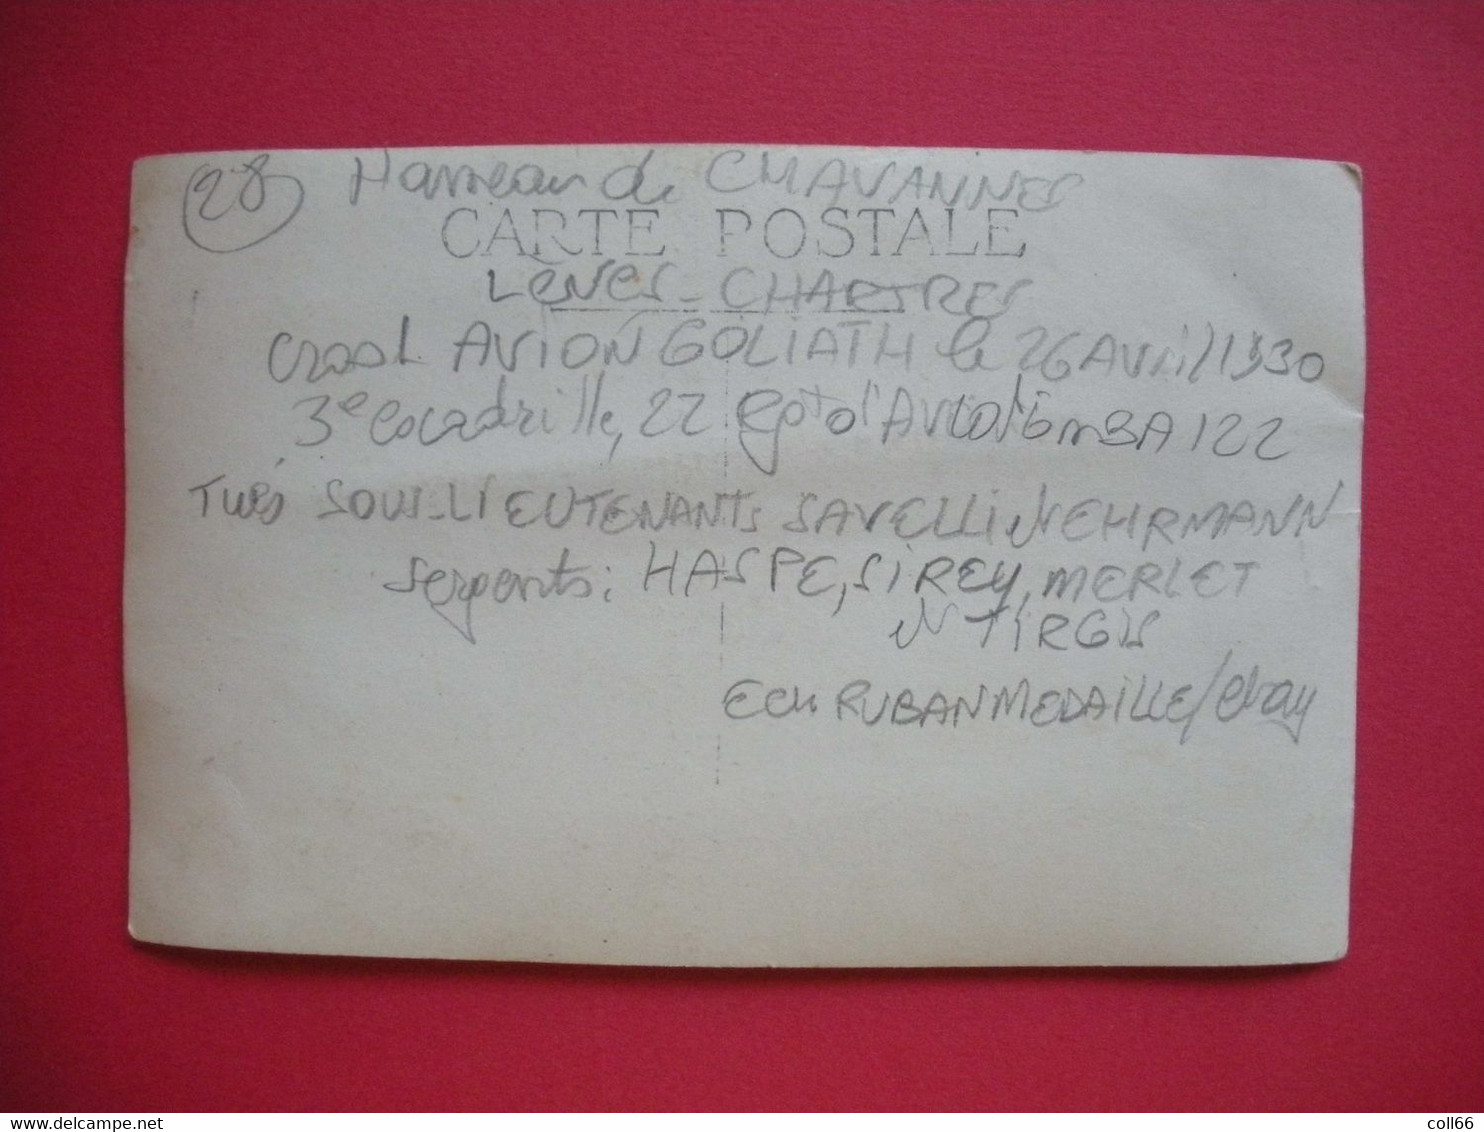 28 Hameau de CHAVANNES
CARTE POSTALE
LEVES - CHARTRES
crash AVION GOLIATH le 26 Avril 1930
3e escadrille, 22 Rgt d'Aviation BA 122
Tués SOUS-LIEUTENANTS SAVELLI et NEHRMANN
sergents: HASPE, SIREY, MERLET
et TIRGIS
Ech RUBANMEDAILLE/ebay
www.delcampe.net
coll66